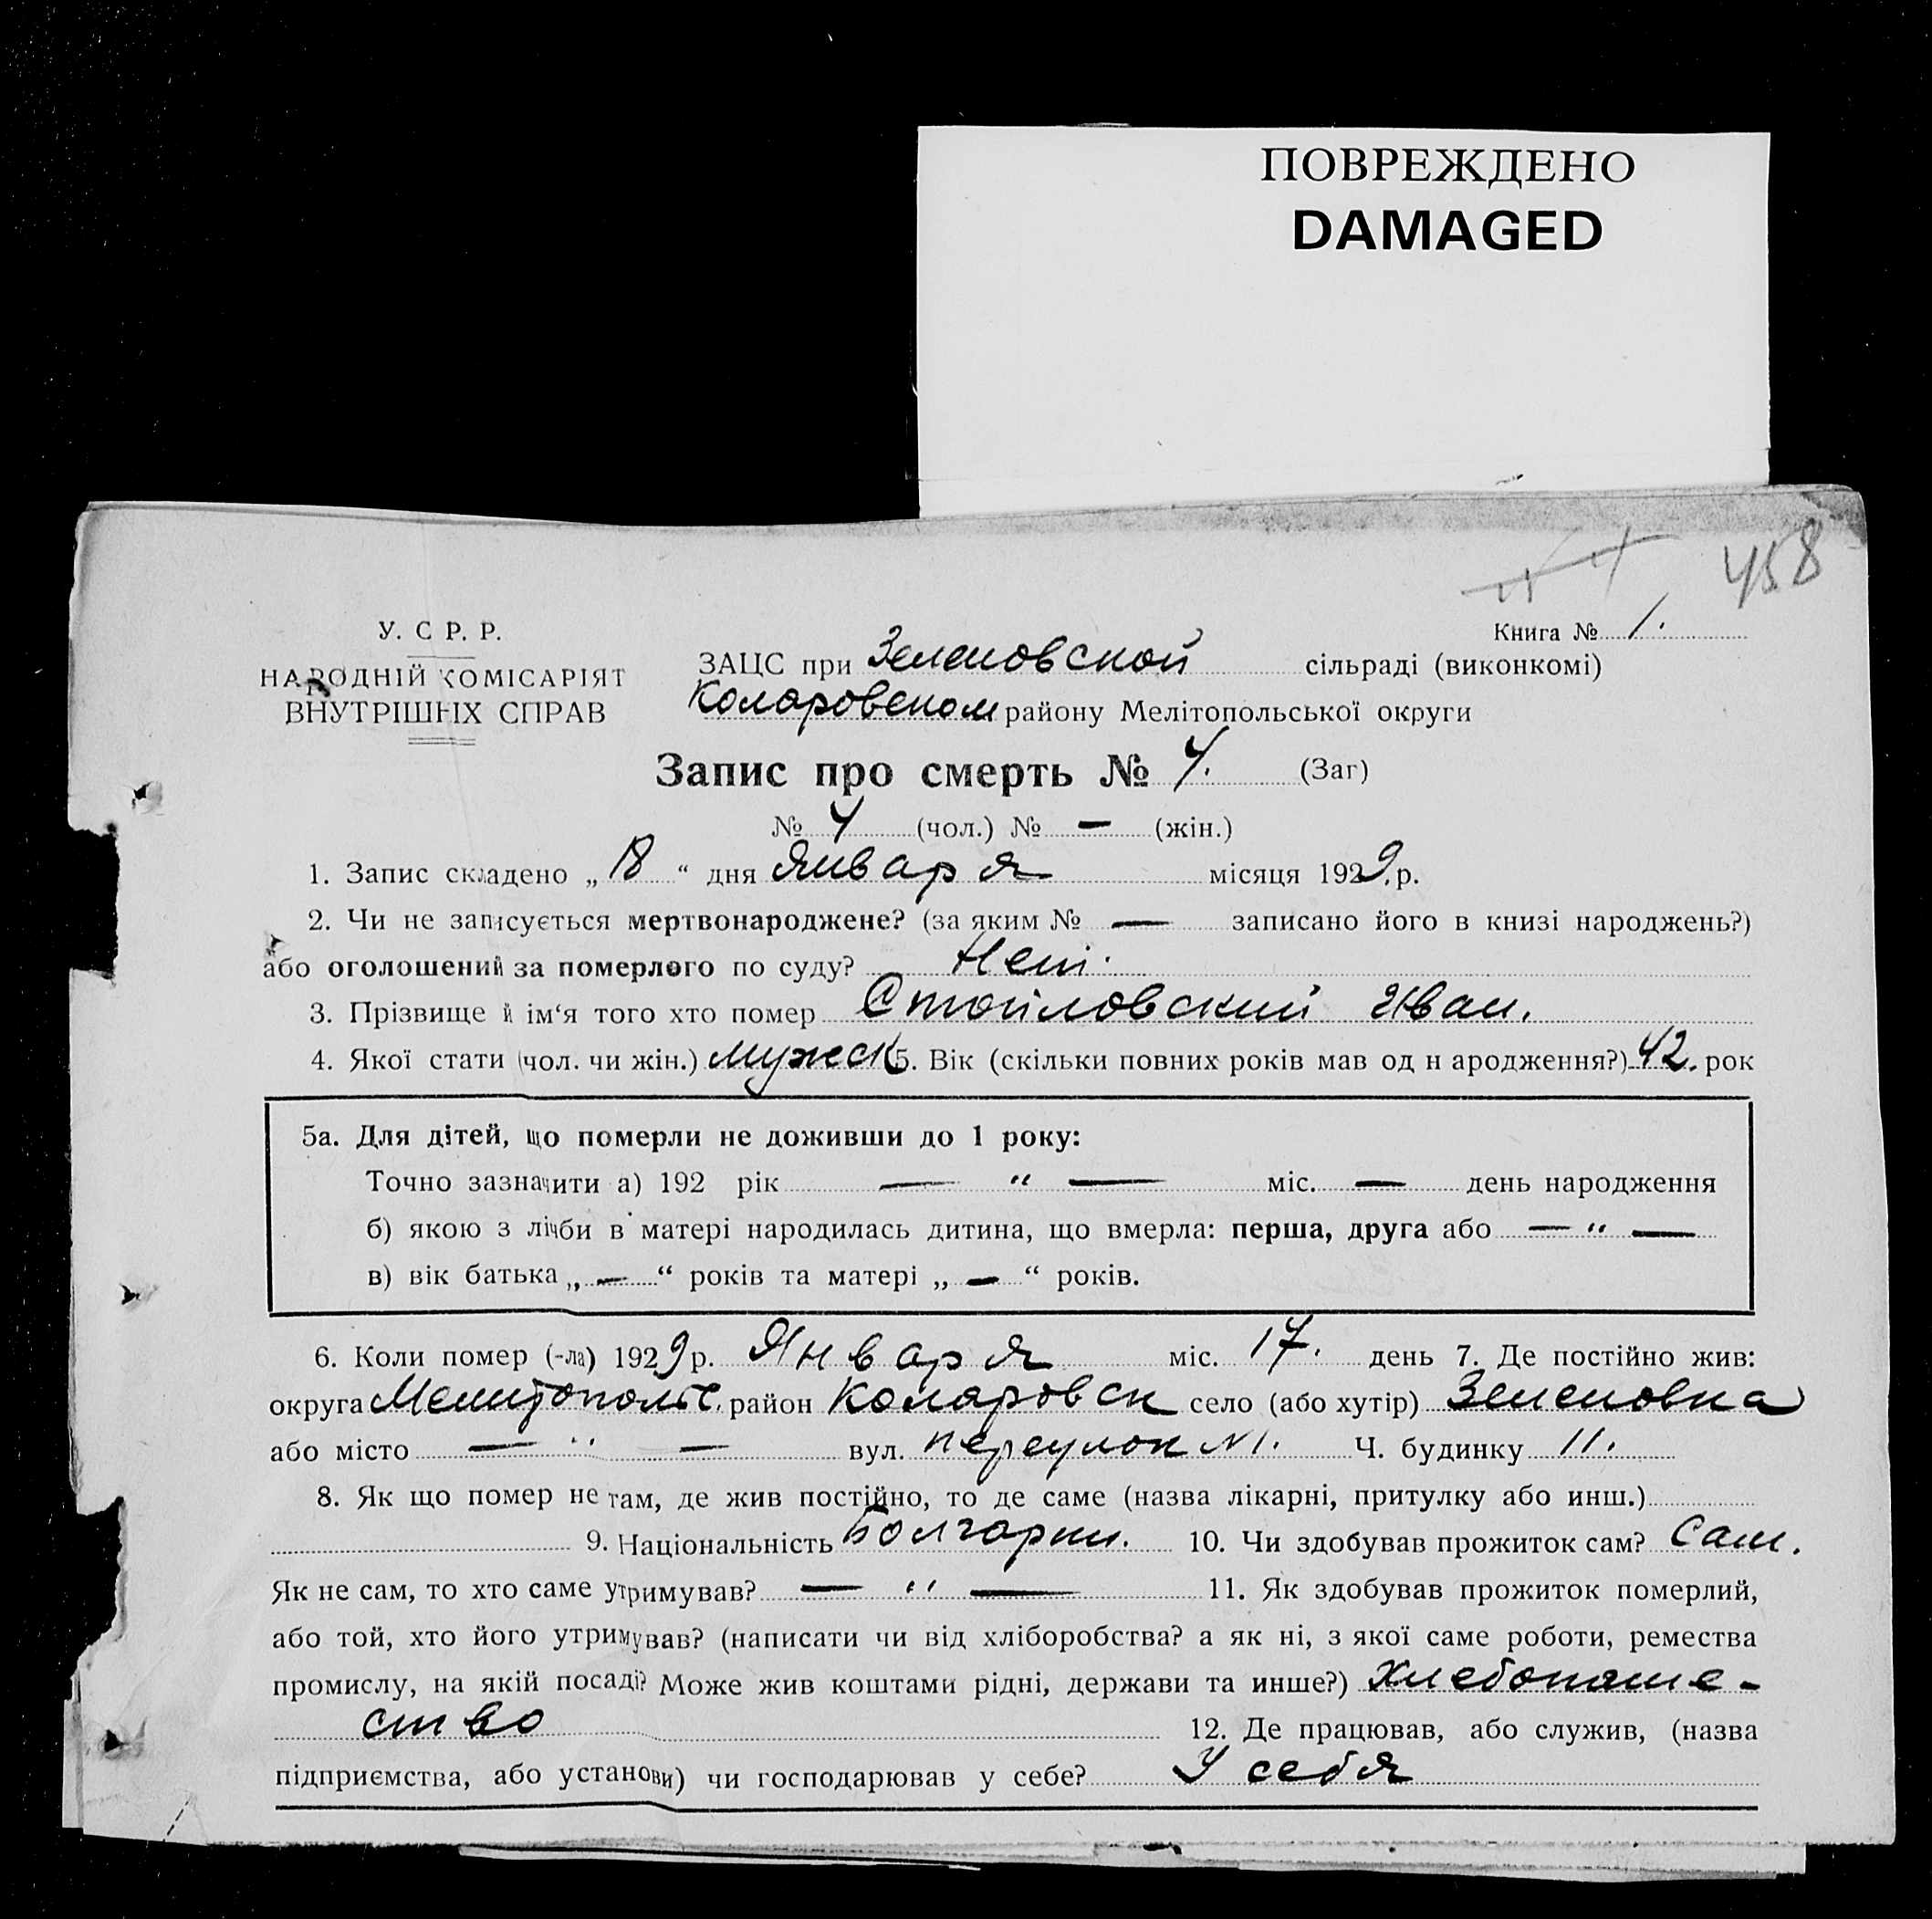 ПОВРЕЖДЕНО
DAMAGED
458
У. С Р. Р.
НАРОДНІЙ КОМІСАРІЯТ
ВНУТРІШНІХ СПРАВ
Книга № 1.
ЗАЦС при Зеленовской сільраді (виконкомі)
Коларовском району Мелітопольської округи
Запис про смерть № 4. (Заг)
№ 4 (чол.) № — (жін.)
1. Запис складено „ 18 “ дня Января місяця 1929.р.
2. Чи не записується мертвонароджене? (за яким № — записано його в книзі народжень?)
або оголошений за померлого по суду? Нет.
3. Прізвище й ім‘я того хто помер Стойловский Иван.
4. Якої стати (чол. чи жін.) Мужск 5. Вік (скільки повних років мав од н ародження?) 42. рок
5а. Для дітей, що померли не доживши до 1 року:
Точно зазначити а) 192 рік — “ — міс. — день народження
б) якою з лічби в матері народилась дитина, що вмерла: перша, друга або — “ —
в) вік батька „ — “ років та матері „ — “ років.
6. Коли помер (-ла) 1929 р. Января міс. 17. день 7. Де постійно жив:
округа Мелитопольс. район Коларовск село (або хутір) Зеленовка
або місто — “ — вул. переулок N 1. Ч. будинку 11.
8. Як що помер не там, де жив постійно, то де саме (назва лікарні, притулку або инш.)
9. Національність Болгарин. 10. Чи здобував прожиток сам? Сам.
Як не сам, то хто саме утримував? — “ — 11. Як здобував прожиток померлий,
або той, хто його утримував? (написати чи від хліборобства? а як ні, з якої саме роботи, ремества
промислу, на якій посаді? Може жив коштами рідні, держави та инше?) Хлебопаше-
ство 12. Де працював, або служив, (назва
підприємства, або установи) чи господарював у себе? У себя